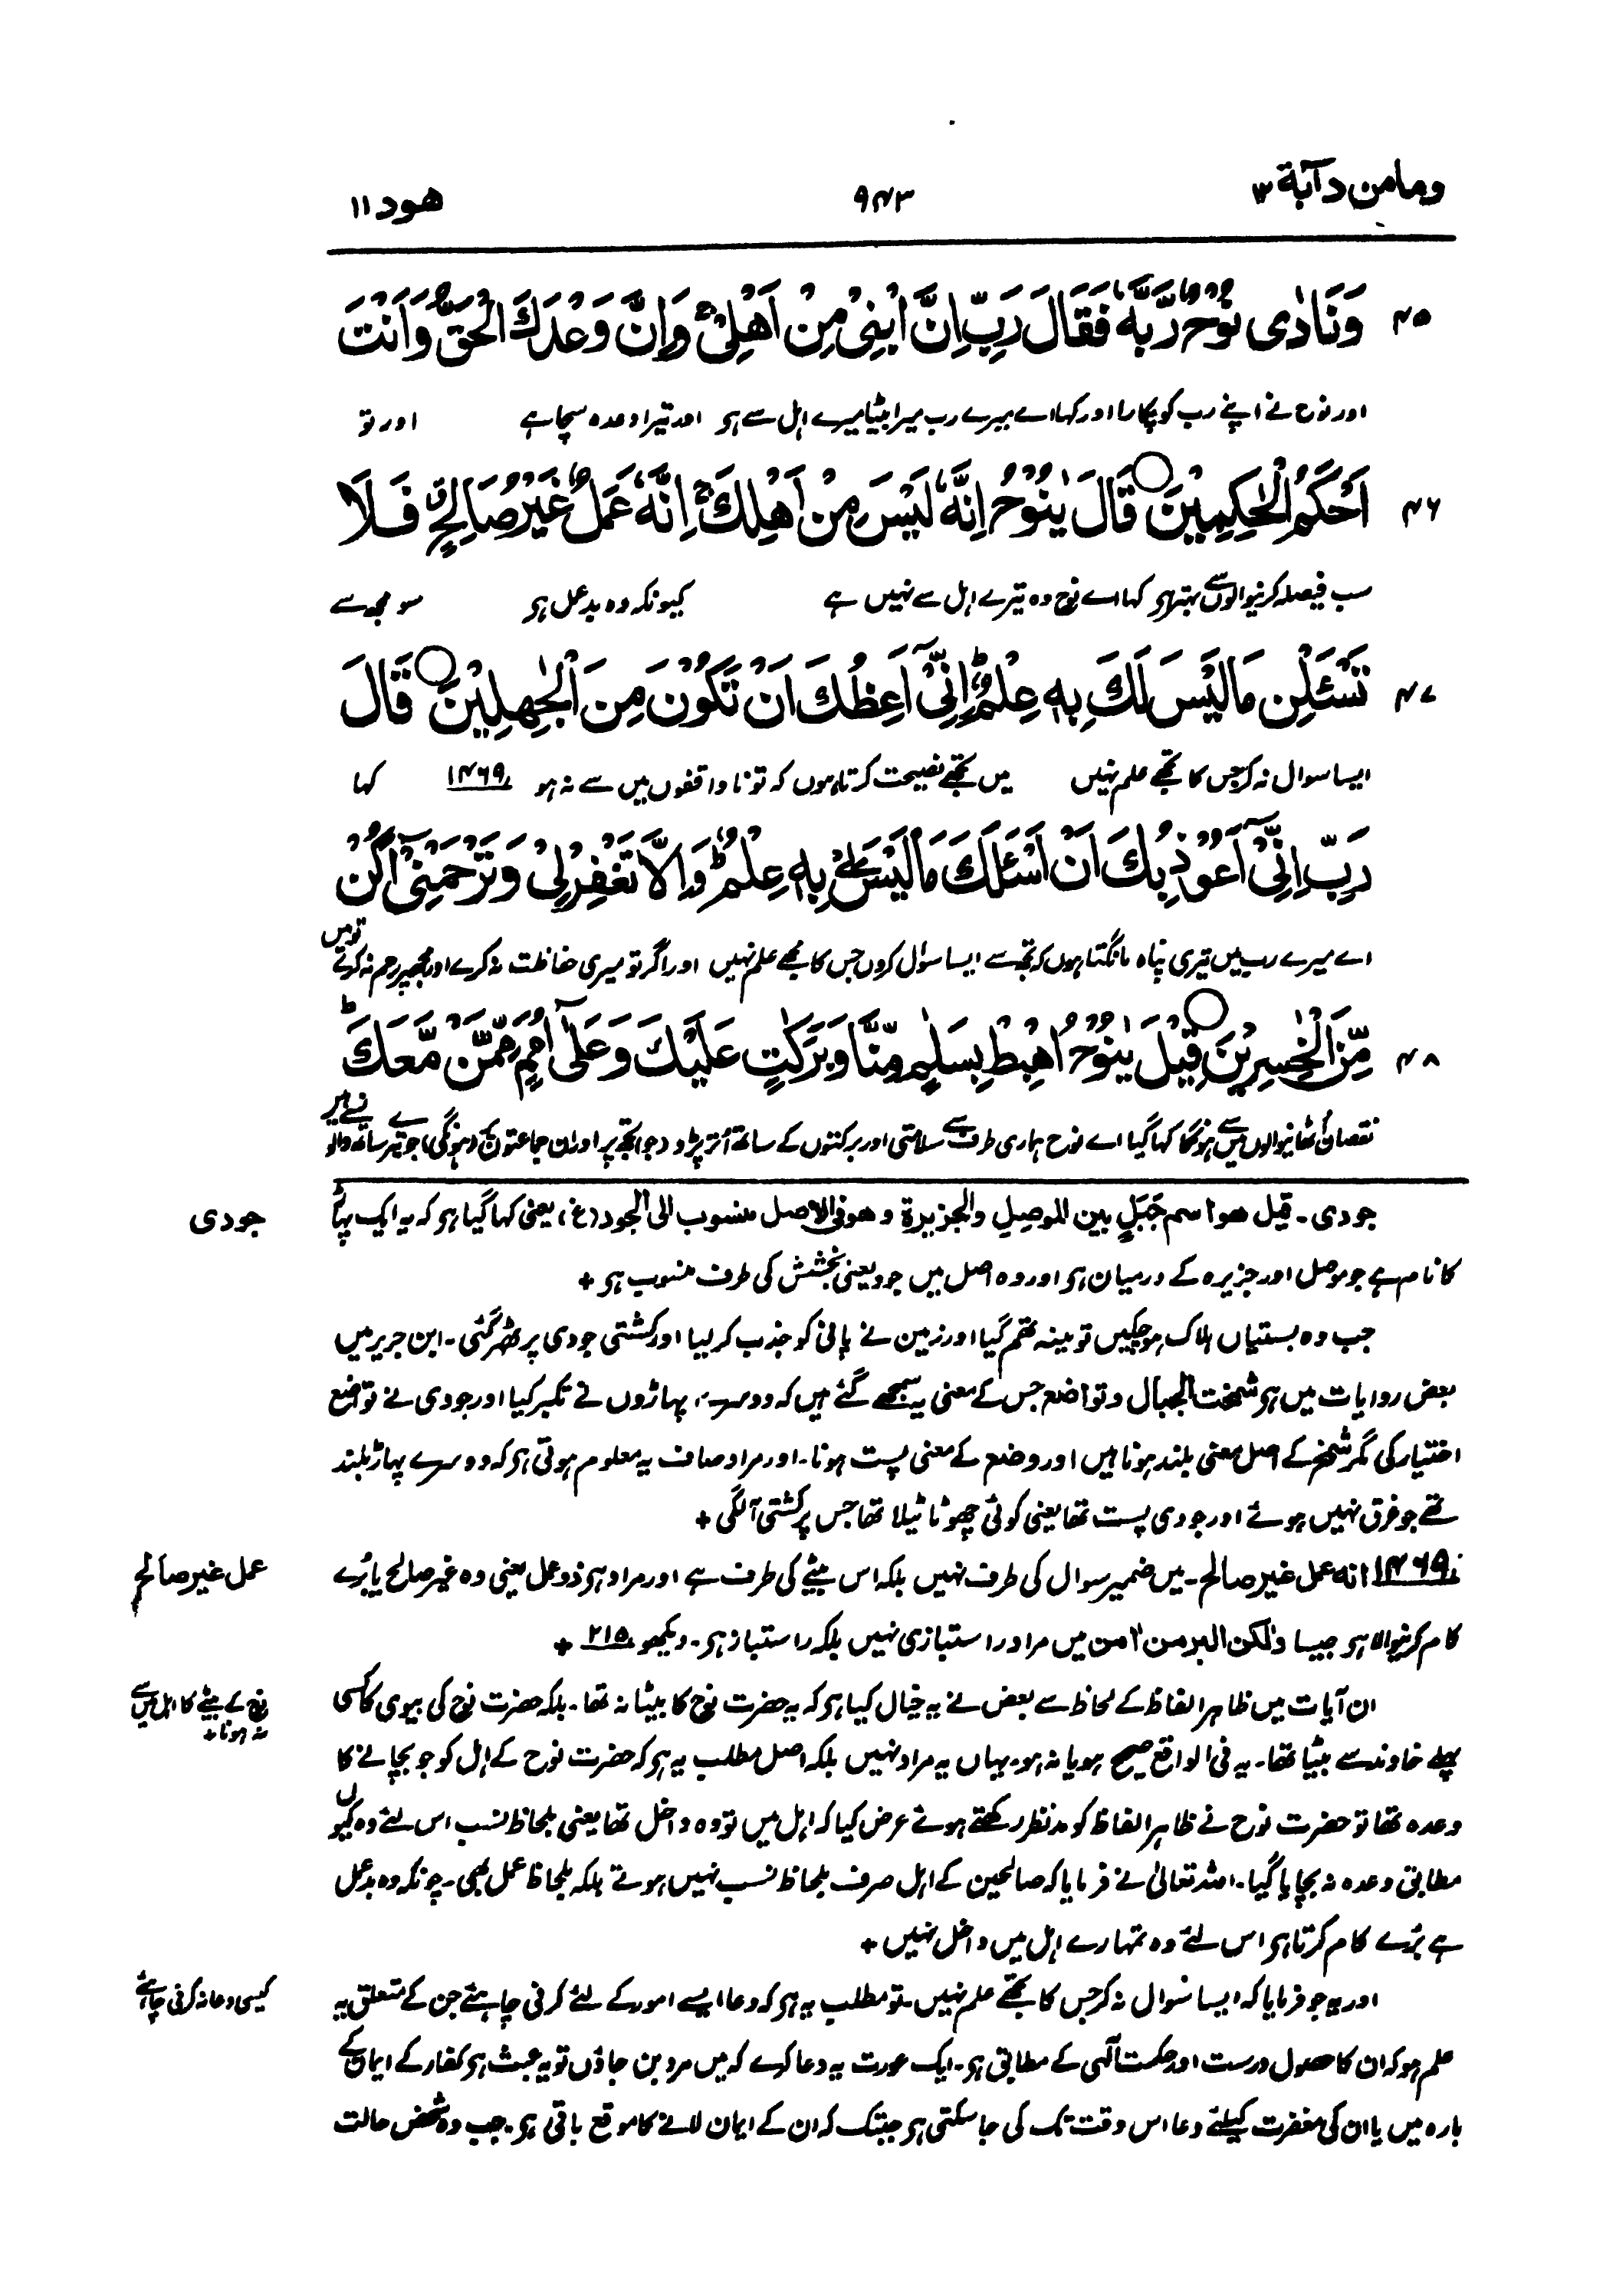 ومامن دآبة ۱۲
۹۴۳
هود ۱۱
۴۵ وَنَادٰى نُوْحٌ رَّبَّهٗ فَقَالَ رَبِّ اِنَّ ابْنِىْ مِنْ اَهْلِىْ ۚ وَاِنَّ وَعْدَكَ الْحَقُّ وَاَنْتَ
اور نوح نے اپنے رب کو پکارا اور کہا اے میرے رب میرا بیٹا میرے اہل سے ہر اور تیرا وعدہ سچا ہے اور تو
۴۶ اَحْكَمُ الْحٰكِمِيْنَ ○ قَالَ يٰنُوْحُ اِنَّهٗ لَيْسَ مِنْ اَهْلِكَ ۚ اِنَّهٗ عَمَلٌ غَيْرُ صَالِحٍ ۖ فَلَا
سب فیصلہ کرنیوالوں سے بہتر ہر کہا اے نوح وہ تیرے اہل سے نہیں ہے کیونکہ وہ بدعمل ہر سو مجھ سے
۴۷ تَسْـَٔلْنِ مَا لَيْسَ لَكَ بِهٖ عِلْمٌ ؕ اِنِّىْٓ اَعِظُكَ اَنْ تَكُوْنَ مِنَ الْجٰهِلِيْنَ ○ قَالَ
ایسا سوال نہ کر جس کا تجھے علم نہیں میں تجھے نصیحت کرتا ہوں کہ تو ناواقفوں میں سے نہ ہو ۱۴۶۹ کہا
رَبِّ اِنِّىْٓ اَعُوْذُ بِكَ اَنْ اَسْـَٔلَكَ مَا لَيْسَ لِىْ بِهٖ عِلْمٌ ؕ وَاِلَّا تَغْفِرْ لِىْ وَتَرْحَمْنِىْٓ اَكُنْ
اے میرے رب میں تیری پناہ مانگتا ہوں کہ تجھ سے ایسا سوال کروں جس کا مجھے علم نہیں اور اگر تو میری حفاظت نہ کرے اور مجھپر رحم نہ کرے تو میں
۴۸ مِّنَ الْخٰسِرِيْنَ ○ قِيْلَ يٰنُوْحُ اهْبِطْ بِسَلٰمٍ مِّنَّا وَبَرَكٰتٍ عَلَيْكَ وَعَلٰٓى اُمَمٍ مِّمَّنْ مَّعَكَ ؕ
نقصان اُٹھانیوالوں میں سے ہونگا کہا گیا اے نوح ہماری طرف سے سلامتی اور برکتوں کے ساتھ اُتر پڑو (جو) تجھ پر اور ان جماعتوں پر (ہونگی) جو تیرے ساتھ والوں سے
جودی
جودی۔ قیل هو اسم جَبَلٍ بین الموصل والجزیرۃ وهو فی الاصل منسوب الی الجود (غ)، یعنی کہا گیا ہر کہ یہ ایک پہاڑ
کا نام ہے جو موصل اور جزیرہ کے درمیان ہر اور وہ اصل میں جود یعنی بخشش کی طرف منسوب ہر +
جب وہ بستیاں ہلاک ہوچکیں تو مینہ تھم گیا اور زمین نے پانی کو جذب کر لیا اور کشتی جودی پر ٹھہر گئی۔ ابن جریر میں
بعض روایات میں ہر شمخت الجبال وتواضع جس کے معنی یہ سمجھے گئے ہیں کہ دوسرے پہاڑوں نے تکبر کیا اور جودی نے تواضع
اختیار کی مگر شمخ کے اصل معنی بلند ہونا ہیں اور وضع کے معنی پست ہونا۔ اور مراد صاف یہ معلوم ہوتی ہر کہ دوسرے پہاڑ بلند
تھے جو غرق نہیں ہوئے اور جودی پست تھا یعنی کوئی چھوٹا ٹیلا تھا جس پر کشتی آلگی +
عمل غیر صالح
۱۴۶۹ انه عمل غیر صالح۔ میں ضمیر سوال کی طرف نہیں بلکہ اس بیٹے کی طرف ہے اور مراد ہر ذو عمل یعنی وہ غیر صالح یا بُرے
کام کرنیوالا ہر جیسا ولٰکن البر من اٰمن میں مراد راستبازی نہیں بلکہ راستباز ہر۔ دیکھو ۲۱۵ +
نوح کے بیٹے کا اہل میں سے نہ ہونا +
ان آیات میں ظاہر الفاظ کے لحاظ سے بعض نے یہ خیال کیا ہر کہ یہ حضرت نوح کا بیٹا نہ تھا۔ بلکہ حضرت نوح کی بیوی کا کسی
پہلے خاوند سے بیٹا تھا۔ یہ فی الواقع صحیح ہو یا نہ ہو۔ یہاں یہ مراد نہیں بلکہ اصل مطلب یہ ہر کہ حضرت نوح کے اہل کو جو بچانے کا
وعدہ تھا تو حضرت نوح نے ظاہر الفاظ کو مدنظر رکھتے ہوئے عرض کیا کہ اہل میں تو وہ داخل تھا یعنی بلحاظ نسب اس لئے وہ کیوں
مطابق وعدہ نہ بچایا گیا۔ اللہ تعالیٰ نے فرمایا کہ صالحین کے اہل صرف بلحاظ نسب نہیں ہوتے بلکہ بلحاظ عمل بھی۔ چونکہ وہ بدعمل
ہے بُرے کام کرتا ہر اس لئے وہ تمہارے اہل میں داخل نہیں +
کیسی دعا نہ کرنی چاہئے
اور یہ جو فرمایا کہ ایسا سوال نہ کر جس کا تجھے علم نہیں۔ تو مطلب یہ ہر کہ دعا ایسے امور کے لئے کرنی چاہئے جن کے متعلق یہ
علم ہو کہ ان کا حصول درست اور حکمت الٰہی کے مطابق ہر۔ ایک عورت یہ دعا کرے کہ میں مرد بن جاؤں تو یہ عبث ہر کفار کے ایمان کے
بارہ میں یا ان کی مغفرت کیلئے دعا اس وقت تک کی جا سکتی ہر جبتک کہ ان کے ایمان لانے کا موقع باقی ہر۔ جب وہ شخص حالت